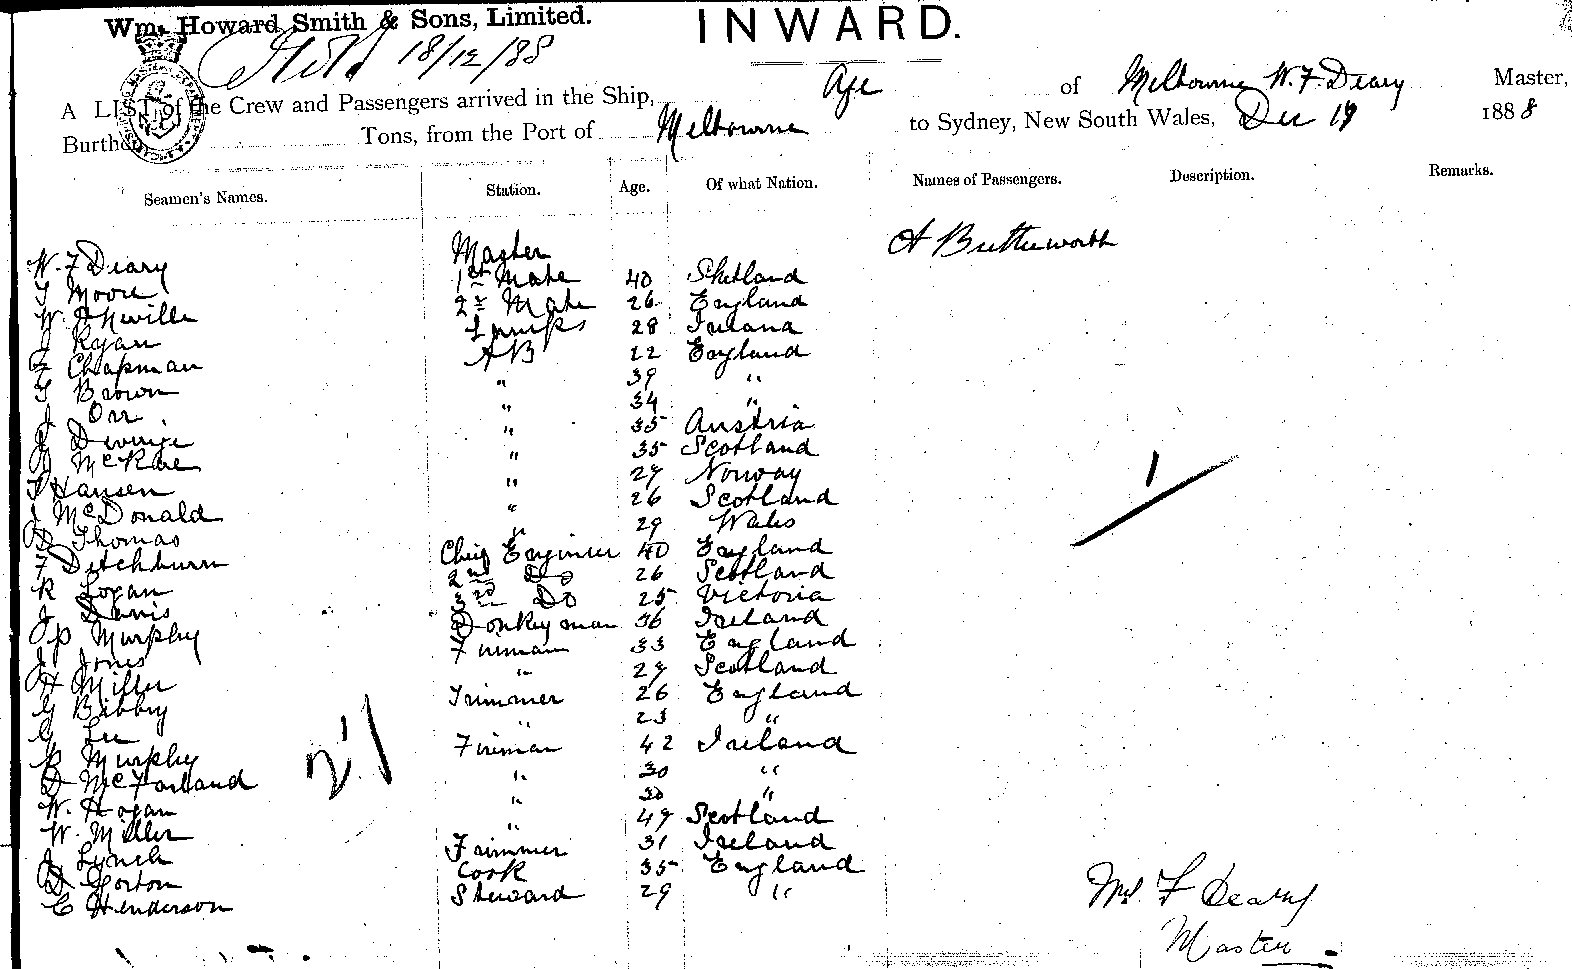 Wm. Howard Smith & Sons, Limited.
INWARD.
18/12/88
A LIST of the Crew and Passengers arrived in the Ship, Age of Melbourne W. F. Deary Master,
Burthen Tons, from the Port of Melbourne to Sydney, New South Wales, Dec 19 1888
Seamen's Names. Station. Age. Of what Nation. Names of Passengers. Description. Remarks.
W. F Deary Master A Butterworth
T Moore 1st Mate 40 Shetland
W. Neville 2nd Mate 26 England
J Ryan Lamps 28 Ireland
F Chapman A B 22 England
T Brown " 39 "
J Orr " 34 "
" 35 Austria
McRae " 35 Scotland
Hansen " 29 Norway
J McDonald " 26 Scotland
D Thomas " 29 Wales
F Ditchburn Chief Engineer 40 England
R Logan 2nd Do 26 Scotland
J Davis 3rd Do 25 Victoria
P Murphy Donkeyman 36 Ireland
J Jones Fireman 33 England
H Miller " 29 Scotland
G Bibby Trimmer 26 England
G Lee " 23 "
P Murphy Fireman 42 Ireland
D McFarland " 30 "
W. Hogan " 30 "
W. Miller " 49 Scotland
J Lynch Trimmer 31 Ireland
D Gorton Cook 35 England
C Henderson Steward 29 "
21
1
F Deary
Master